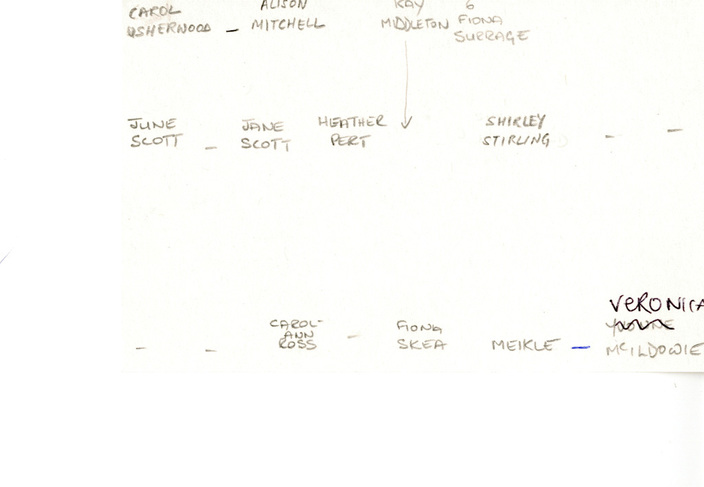 CAROL ALISON KAY 6
USHERWOOD – MITCHELL MIDDLETON FIONA
SURRAGE
JUNE JANE HEATHER SHIRLEY
SCOTT – SCOTT PERT STIRLING – –
VERONICA
CAROL- FIONA
ANN
– – ROSS – SKEA MEIKLE – MCILDOWIE